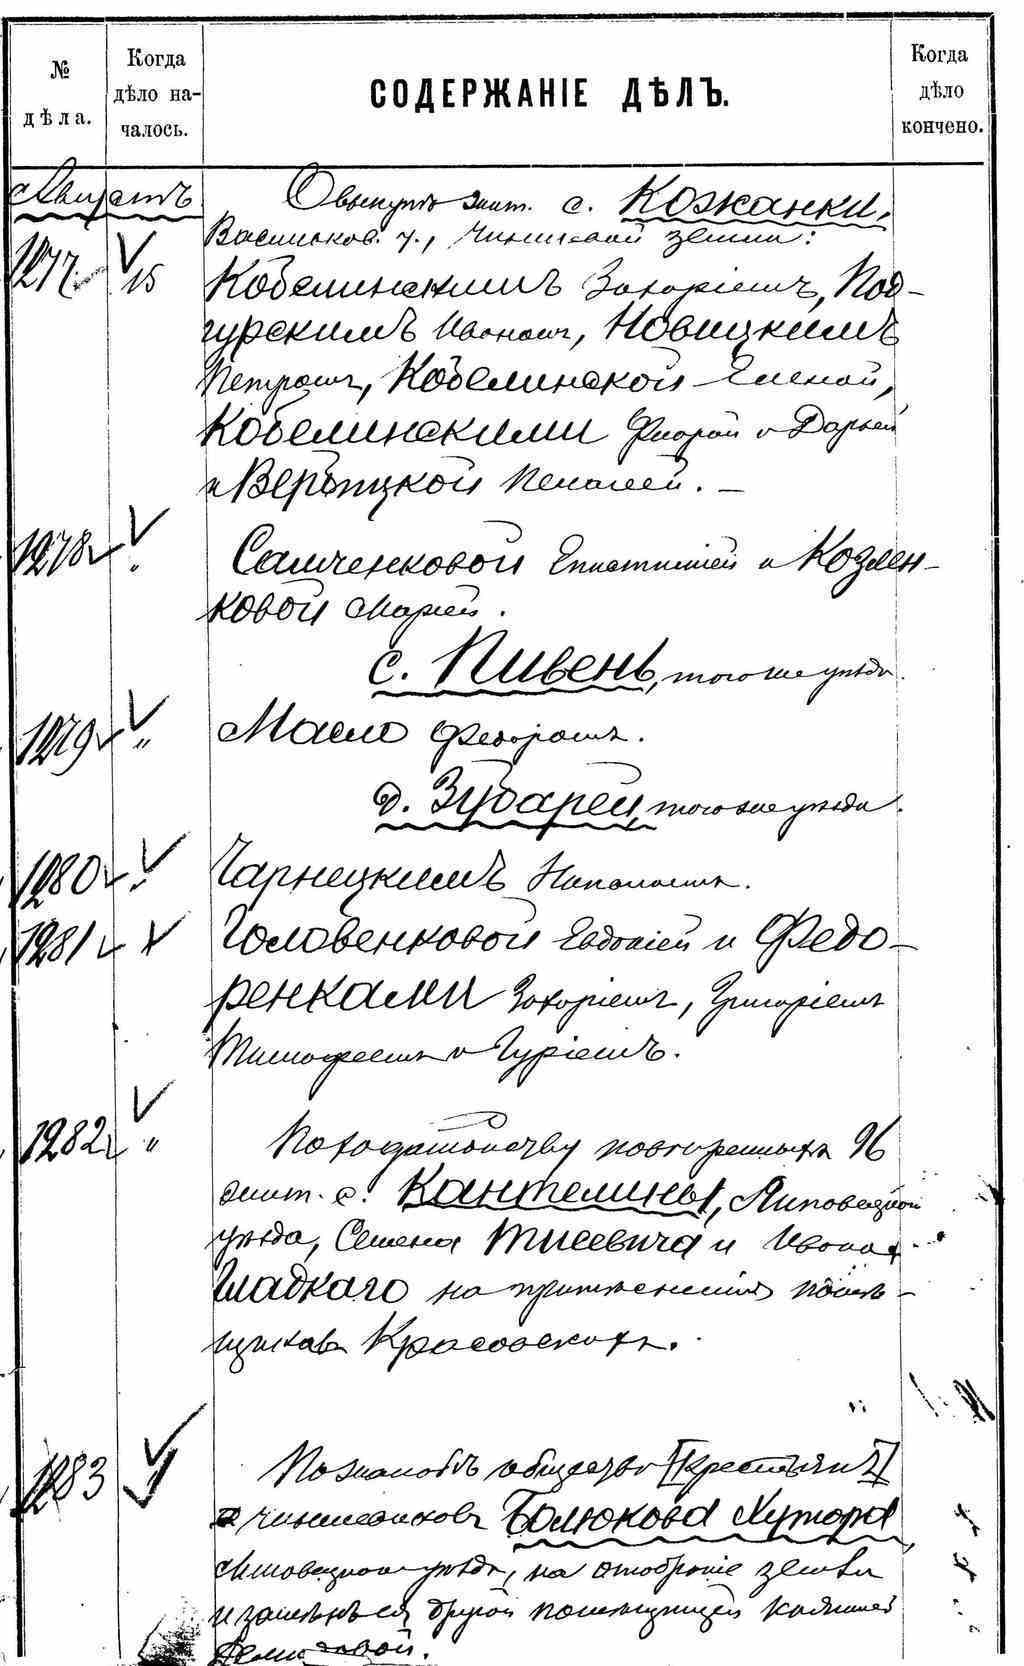 № дѣла.
Когда дѣло началось.
СОДЕРЖАНІЕ ДѢЛЪ.
Когда дѣло кончено.
Августъ
О выкупѣ жит. с. Кожанки,
Васильков. у., чиншевой земли:
1277 15 Кобелинскимъ Захаріемъ, Под-
гурскимъ Иваномъ, Новицкимъ
Петромъ, Кобелинской Еленой,
Кобелинскими Фларой и Дарьей
и Вербицкой Пелагеей. —
1278 " Самченковой Епистиміей и Козлен-
ковой Маріей.
с. Пивень, того же уѣзда.
1279 " Масло Федоромъ.
д. Зубарей, того же уѣзда.
1280 " Чарнецкимъ Николаемъ.
1281 Головенковой Евдокіей и Федо-
ренками Захаріемъ, Григоріемъ
Тимофеемъ и Гуріемъ.
1282 " По ходатайству повѣренныхъ 96
жит. с. Кантелины, Липовецкой
уѣзда, Семена Тисевича и Ивана
Гладкаго на притѣсненія помѣ-
щиковъ Красовскихъ.
1283 По жалобѣ общества [крестьянъ]
чиншевиковъ Балюкова Хутора,
Липовецкого уѣзда, на отобраніе земли
и замѣнѣ ея другой помѣщицей